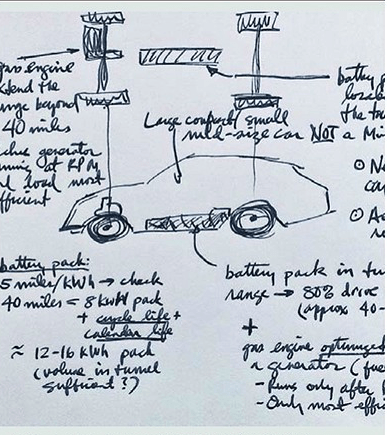 gas engine
extend the
range beyond
40 miles
generator
running at RPM
load most
efficient
battery
the
Large compact / small
mid-size car NOT a Mi
battery pack:
5 miles/kWh → check
40 miles = 8 kWh pack
+ cycle life +
calendar life
≈ 12-16 kWh pack
(volume in tunnel
sufficient?)
battery pack in tu
range → 80% drive
(approx 40-
+
gas engine optimized
generator (fue
- Runs only after
- Only most effi